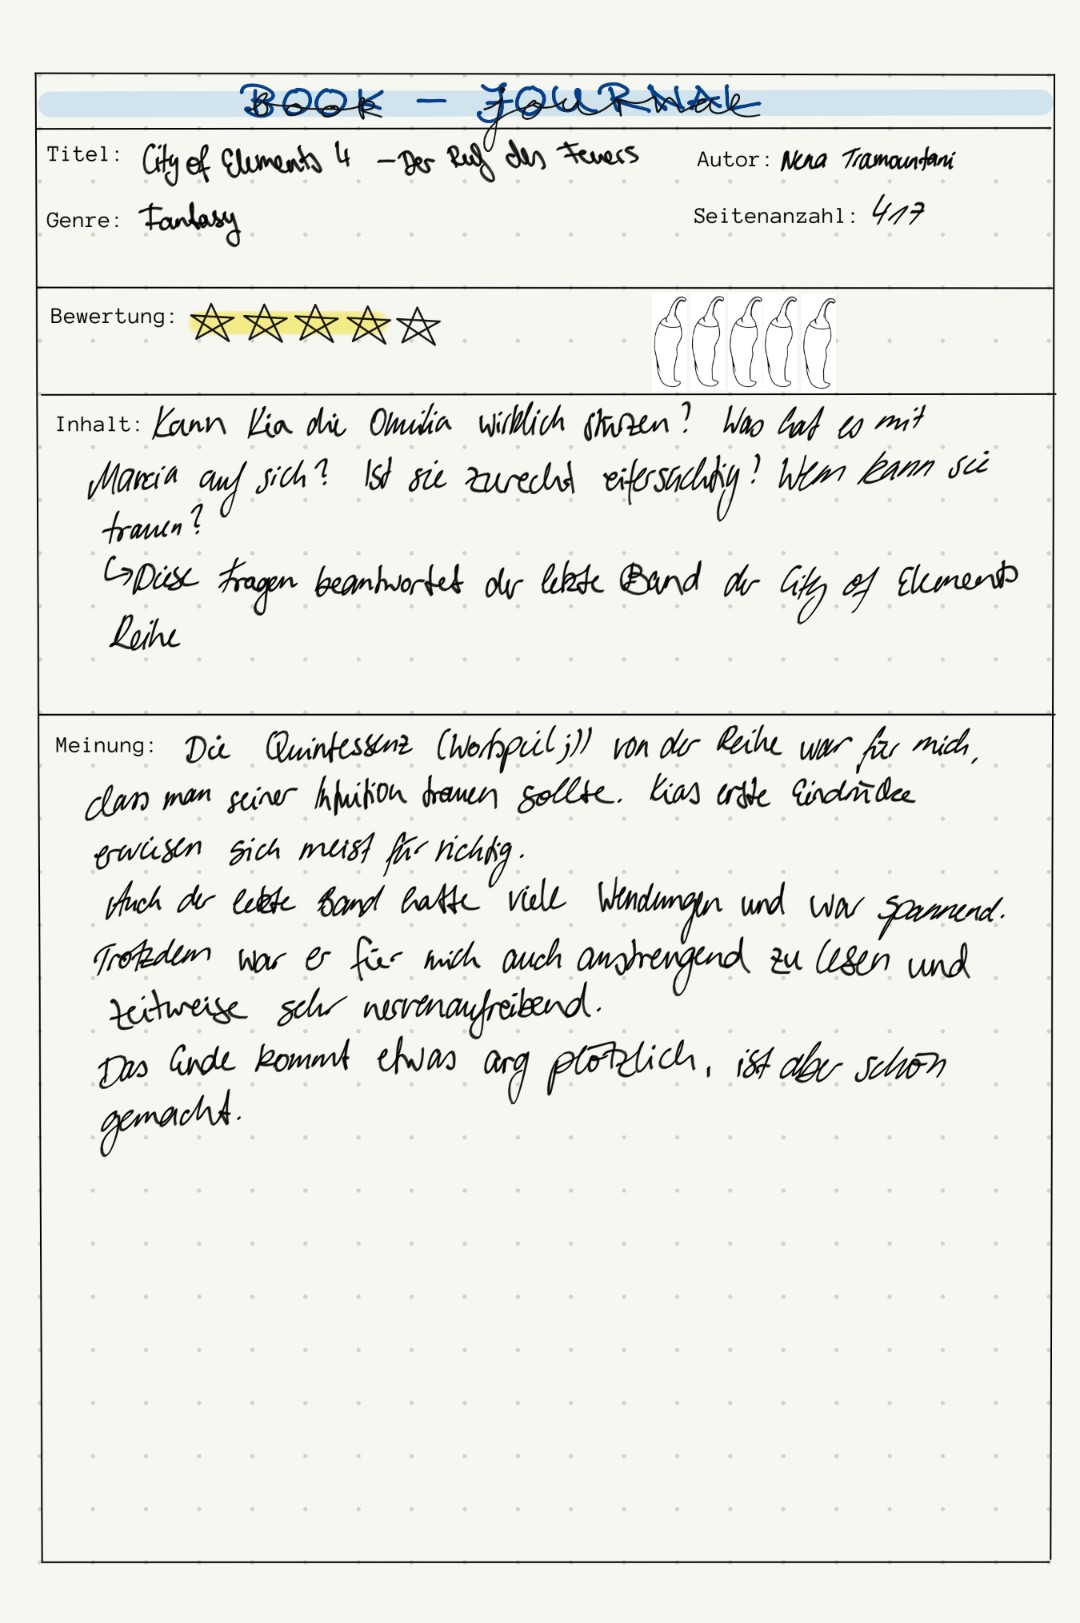 BOOK - JOURNAL
Titel: City of Elements 4 - Der Ruf des Feuers Autor: Nena Tramountani
Genre: Fantasy Seitenanzahl: 417
Bewertung:
Inhalt: Kann Kia die Omilia wirklich stürzen? Was hat es mit
Marcia auf sich? Ist sie zurecht eifersüchtig? Wem kann sie
trauen?
↳ Diese Fragen beantwortet der letzte Band der City of Elements
Reihe
Meinung: Die Quintessenz (Wortspiel ;)) von der Reihe war für mich,
dass man seiner Intuition trauen sollte. Kias erste Eindrücke
erweisen sich meist für richtig.
Auch der letzte Band hatte viele Wendungen und war spannend.
Trotzdem war er für mich auch anstrengend zu lesen und
zeitweise sehr nervenaufreibend.
Das Ende kommt etwas arg plötzlich, ist aber schön
gemacht.